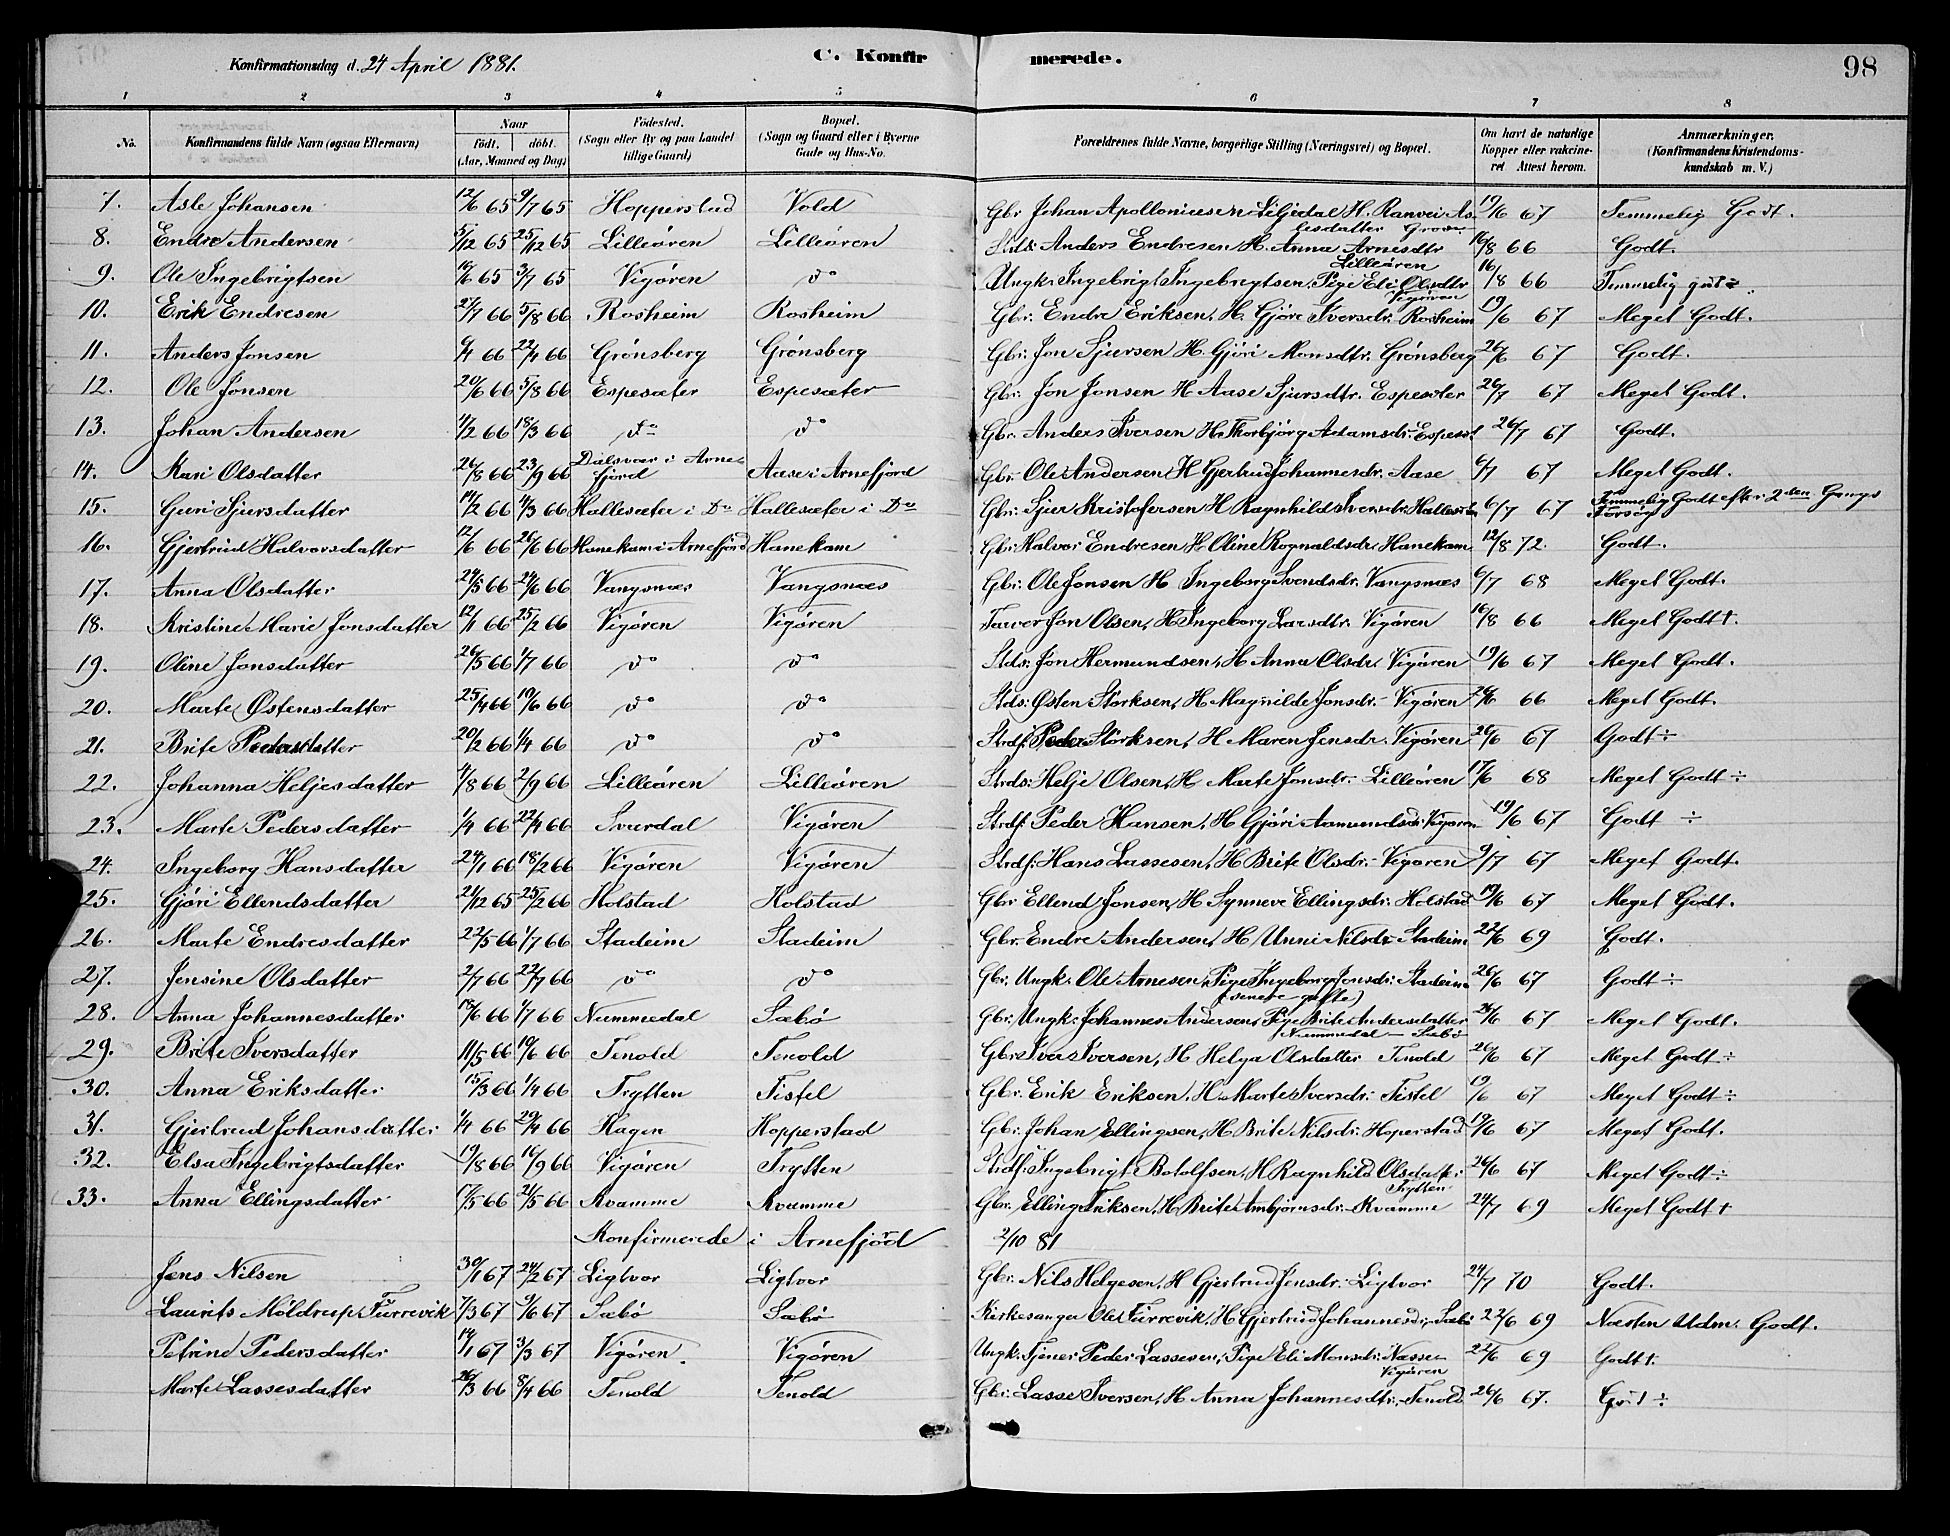 Konfirmationsdag d. 24 April 1881. C. Konfirmerede. 98
1 2 3 4 5 6 7 8
No. Konfirmandens fulde Navn (ogsaa Efternavn) Naar født. døbt. (Aar, Maaned og Dag) Fødested. (Sogn eller By og paa Landet tillige Gaard) Bopæl. (Sogn og Gaard eller i Byerne Gade og Hus-No. Forældrenes fulde Navne, borgerlige Stilling (Næringsvei) og Bopæl. Om havt de naturlige Kopper eller vakcineret Attest herom. Anmærkninger. (Konfirmandens Kristendomskundskab m. V.)
7. Asle Johansen 12/6 65 9/7 65 Hopperstad Vold Gbr Johan Apolloniussen Liljedal H. Ranvei As- 19/6 67 Temmelig Godt.
8. Endre Andersen 5/12 65 25/12 65 Lilleøren Lilleøren Stds: Anders Endresen H. Anna Arnesdtr Lilleøren 16/8 66 Godt.
9. Ole Ingebrigtsen 65 3/7 65 Vigøren do Ungk: Ingebrigt Ingebrigtsen, Pige Eli Olsdtr Vigøren 16/8 66 Temmelig godt
10. Erik Endresen 27/7 66 5/8 66 Rosheim Rosheim Gbr. Endre Eriksen, H. Gjøre Iversdr. Rosheim 19/6 67 Meget Godt.
11. Anders Jonsen 6/4 66 22/4 66 Grønsberg Grønsberg Gbr: Jon Sjursen H. Gjøri Monsdtr. Grønsberg 26/6 67 Godt.
12. Ole Jonsen 20/6 66 5/8 66 Espesæter Espesæter Gbr: Jon Jonsen H Aase Sjursdtr. Espesæter 26/7 67 Meget Godt.
13. Johan Andersen 4/2 66 18/3 66 do do Gbr. Anders Iversen H. Thorbjørg Adamsdr. Espesæt 26/7 67 Godt.
14. Kari Olsdatter 26/8 66 23/9 66 Dalsvær i Arnefjord Aase i Arnefjord Gbr. Ole Andersen H Gjertrud Johannesdr. Aase 6/7 67 Meget Godt.
15. Guri Sjursdatter 14/2 66 4/3 66 Hallesæter i Do Hallesæter i Do Gbr: Sjur Kristofersen H Ragnhild Svensdr. Hallesæter 6/7 67 Temmelig Godt efter 2den Gangs Forsøg
16. Gjertrud Halvorsdatter 12/6 66 26/6 66 Hanekam i Arnefjord Hanekam Gbr: Halvor Endresen H Oline Rognaldsdr. Hanekam 12/8 72. Godt.
17. Anna Olsdatter 24/5 66 24/6 66 Vangsnæs Vangsnæs Gbr: Ole Jonsen H Ingeborg Svendsdr. Vangsnæs 6/7 68 Meget Godt.
18. Kristine Marie Jonsdatter 12/1 66 25/2 66 Vigøren Vigøren Farver Jon Olsen, H. Ingeborg Larsdtr. Vigøren 16/8 66 Meget Godt +.
19. Oline Jonsdatter 26/5 66 1/7 66 do do Stds: Jon Hermundsen, H Anna Olsdr. Vigøren 19/6 67 Meget Godt.
20. Marte Østensdatter 25/4 66 10/6 66 do do Stds: Østen Størksen, H Magnilde Jonsdr. Vigøren 26/6 66 Meget Godt.
21. Brite Pedersdatter 20/2 66 1/4 66 do do Strdf: Peder Størksen, H Maren Jensdr. Vigøren 26/6 67 Godt ÷
22. Johanna Heljesdatter 4/8 66 2/9 66 Lilleøren Lilleøren Strds: Helje Olsen, H Marte Jonsdr. Lilleøren 17/6 68 Meget Godt ÷
23. Marte Pedersdatter 1/4 66 22/4 66 Svardal Vigøren Strdf: Peder Hansen, H Gjøri Aamundsdr. Vigøren 19/6 67 Godt ÷
24. Ingeborg Hansdatter 24/1 66 18/2 66 Vigøren Vigøren Strdf: Hans Lassesen, H Brite Olsdr. Vigøren 9/7 67 Meget Godt.
25. Gjøri Ellendsdatter 21/12 65 25/2 66 Holstad Holstad Gbr Ellend Jonsen, H Synneve Ellingsdr. Holstad 19/6 67 Meget Godt.
26. Marte Endresdatter 22/5 66 1/7 66 Stadeim Stadeim Gbr. Endre Andersen, H Unni Nilsdr. Stadeim 22/6 69 Godt.
27. Jensine Olsdatter 2/7 66 22/7 66 do do Gbr. Ungk: Ole Arnesen, Pige Ingeborg Jonsdr. Stadeim (senere gifte) 26/6 67 Godt ÷
28. Anna Johannesdatter 15/6 66 1/7 66 Nummedal Sæbø Gbr: Ungk: Johannes Andersen, Pige Brite Andersdatter Nummedal - Sæbø 26/6 67 Meget Godt.
29. Brite Iversdatter 11/5 66 19/6 66 Tenold Tenold Gbr: Iver Iversen, H Helga Olsdatter Tenold 26/6 67 Meget Godt ÷
30. Anna Eriksdatter 15/3 66 1/4 66 Trytten Tistel Gbr. Erik Eriksen, H. Marte Iversdr: Tistel 19/6 67 Meget Godt ÷
31. Gjertrud Johansdatter 1/4 66 29/4 66 Hagen Hopperstad Gbr. Johan Ellingsen, H Brite Nilsdr. Hoperstad 19/6 67 Meget Godt.
32. Elsa Ingebrigtsdatter 19/8 66 16/9 66 Vigøren Trytten Strdf: Ingebrigt Botolfsen, H Ragnhild Olsdatter Trytten 26/6 67 Meget Godt ÷
33. Anna Ellingsdatter 17/5 66 21/5 66 Kvamme Kvamme Gbr. Elling Eriksen, H Brite Arnbjørnsdr. Kvamme 24/7 69 Meget Godt +
Konfirmerede i Arnefjord 2/10 81
Jens Nilsen 30/1 67 24/2 67 Ligtvor Ligtvor Gbr. Nils Helgesen, H Gjertrud Jensdr. Ligtvor 24/7 70 Godt.
Laurits Møldrup Turrevik 7/3 67 9/6 67 Sæbø Sæbø Kirkesanger Ole Turrevik, H Gjertrud Johannesdr. Sæbø 22/6 69 Næsten Udm. Godt.
Petrine Pedersdatter 14/1 67 3/3 67 Vigøren Vigøren Ungk. Tjener Peder Lassesen, Pige Eli Monsdr. Næsse Vigøren 22/6 69 Godt +.
Marte Lassesdatter 26/3 66 8/4 66 Tenold Tenold Gbr. Lasse Iversen, H Anna Johannesdtr. Tenold 26/6 67. Godt ÷